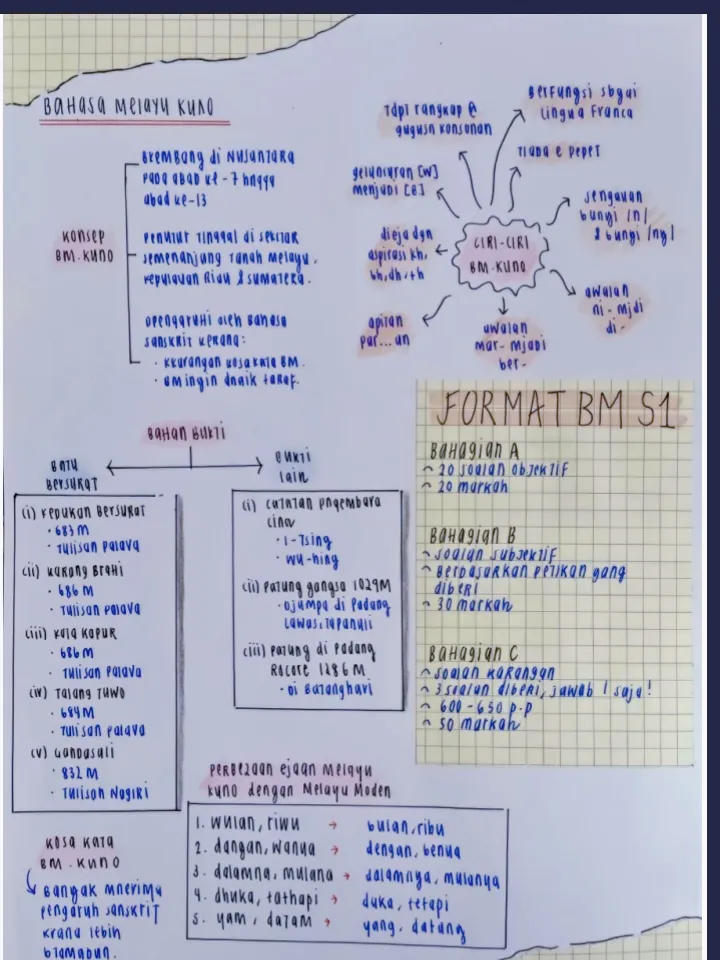 BAHASA MELAYU KUNO
KONSEP
BM.KUNO
BKEMBANG di NUSANTARA
PADA ABAD KE-7 hngga
abad ke-13
PENUTUR TINGGAL di SEKITAR
SEMENANJUNG TANAH MELAYU,
KEPULAUAN RIAU & SUMATERA.
DPENGARUHI OLEH BAHASA
SANSKRIT KERANA:
· KKURANGAN KOSA KATA BM.
· BM INGIN DNAIK TARAF.
CIRI-CIRI
BM.KUNO
TDPT RANGKAP @
gugusn konsonan
BERFUNGSI SBGAI
LINGUA FRANCA
TIADA E PEPET
SENGAUAN
bunyi /n/
& bunyi /ny/
awalan
ni- mjdi
di-
awalan
mar- mjadi
ber-
apitan
par...an
dieja dgn
aspirasi kh,
bh, dh, th
geluncuran [W]
menjadi [B]
BAHAN BUKTI
BATU
BERSURAT
BUKTI
LAIN
(i) KEDUKAN BERSURAT
· 683 M
· TULISAN PALAVA
(ii) KARANG BRAHI
· 686 M
· TULISAN PALAVA
(iii) KOTA KAPUR
· 686 M
· TULISAN PALAVA
(iv) TALANG TUWO
· 684M
· TULISAN PALAVA
(v) GANDASULI
· 832 M
· TULISAN NAGIRI
(i) CATATAN PNGEMBARA
CINA
· I-Tsing
· WU-hing
(ii) PATUNG gangsa 1029M
· DJUMPA di PADANG
LAWAS, TAPANULI
(iii) PATUNG di PADANG
ROCORE 1286 M
· DI BATANGHARI
FORMAT BM S1
BAHAGIAN A
^ 20 SOALAN OBJEKTIF
^ 20 markah
BAHAGIAN B
^ SOALAN SUBJEKTIF
^ BERDASARKAN PETIKAN yang
diberi
^ 30 markah
BAHAGIAN C
^ SOALAN KARANGAN
^ 3 soalan diberi, jawab 1 saja!
^ 600-650 p.p
^ 50 markah
PERBEZAAN ejaan Melayu
kuno dengan Melayu Moden
1. wulan, riwu → bulan, ribu
2. dangan, wanua → dengan, benua
3. dalamna, mulana → dalamnya, mulanya
4. dhuka, tathapi → duka, tetapi
5. yam, datam → yang, datang
KOSA KATA
BM.KUNO
BANYAK MNERIMA
PENGARUH SANSKRIT
KRANA LEBIH
BTAMADUN.